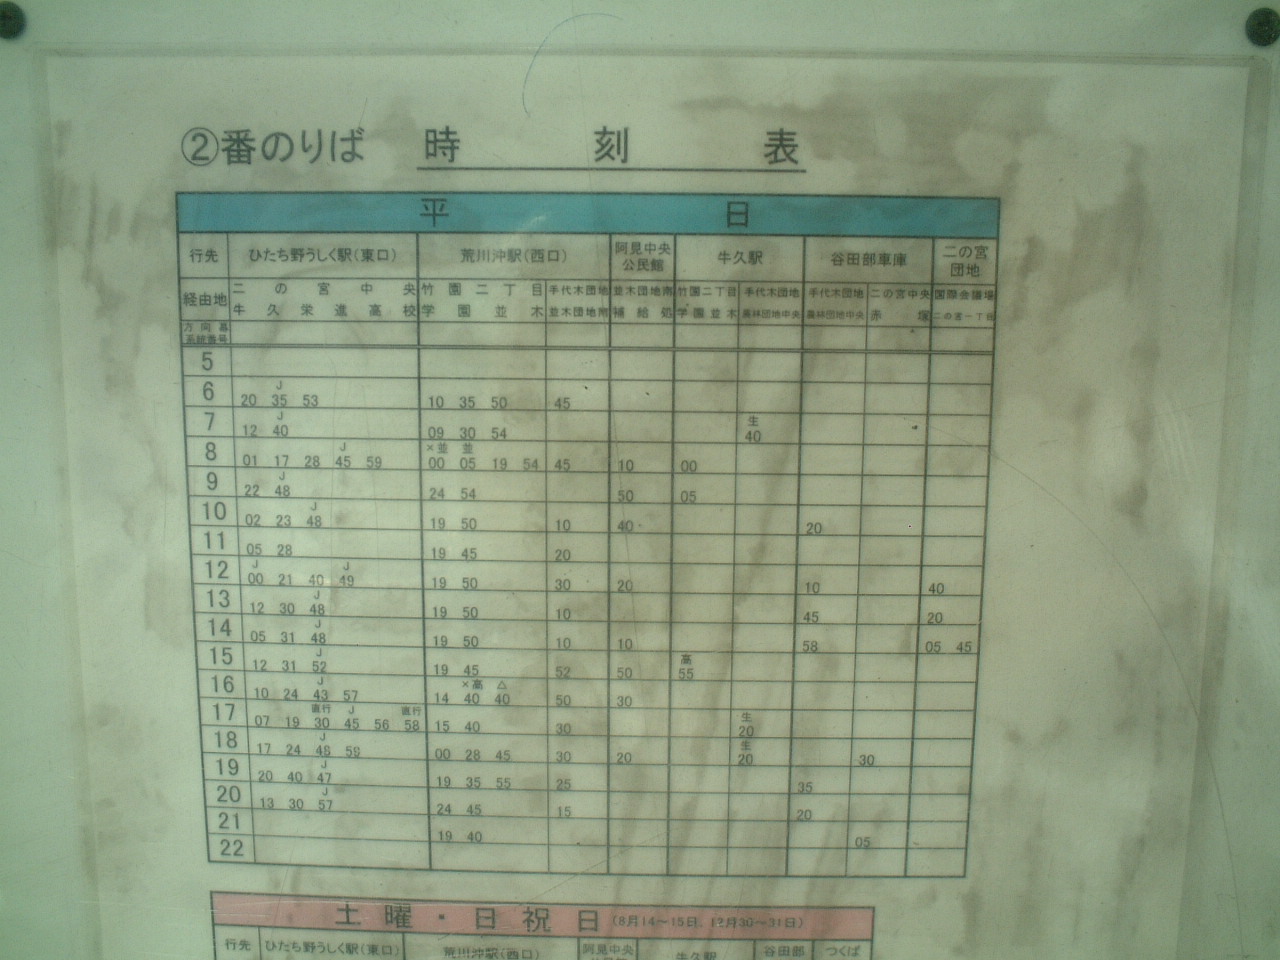 ②番のりば 時 刻 表
平 日
行先 ひたち野うしく駅(東口) 荒川沖駅(西口) 阿見中央公民館 牛久駅 谷田部車庫 二の宮団地
経由地 二の宮中央 竹園二丁目 手代木団地 並木団地南 竹園二丁目 手代木団地 手代木団地 二の宮中央 国際会議場
牛久栄進高校 学園並木 並木団地南 補給処 学園並木 農林団地中央 農林団地中央 赤塚 二の宮一丁目
方向幕
系統番号
5
J
6 20 35 53 10 35 50 45
J 生
7 12 40 09 30 54 40
J ×並 並
8 01 17 28 45 59 00 05 19 54 45 10 00
J
9 22 48 24 54 50 05
J
10 02 23 48 19 50 10 40 20
11 05 28 19 45 20
J J
12 00 21 40 49 19 50 30 20 10 40
J
13 12 30 48 19 50 10 45 20
J
14 05 31 48 19 50 10 10 58 05 45
J 高
15 12 31 52 19 45 52 50 55
J ×高 △
16 10 24 43 57 14 40 40 50 30
直行 J 直行 生
17 07 19 30 45 56 58 15 40 30 20
J 生
18 17 24 48 58 00 28 45 30 20 20 30
J
19 20 40 47 19 35 55 25 35
J
20 13 30 57 24 45 15 20
21 19 40 05
22
土 曜 ・ 日 祝 日 (8月14~15日、12月30~31日)
行先 ひたち野うしく駅(東口) 荒川沖駅(西口) 阿見中央 牛久駅 谷田部 つくば